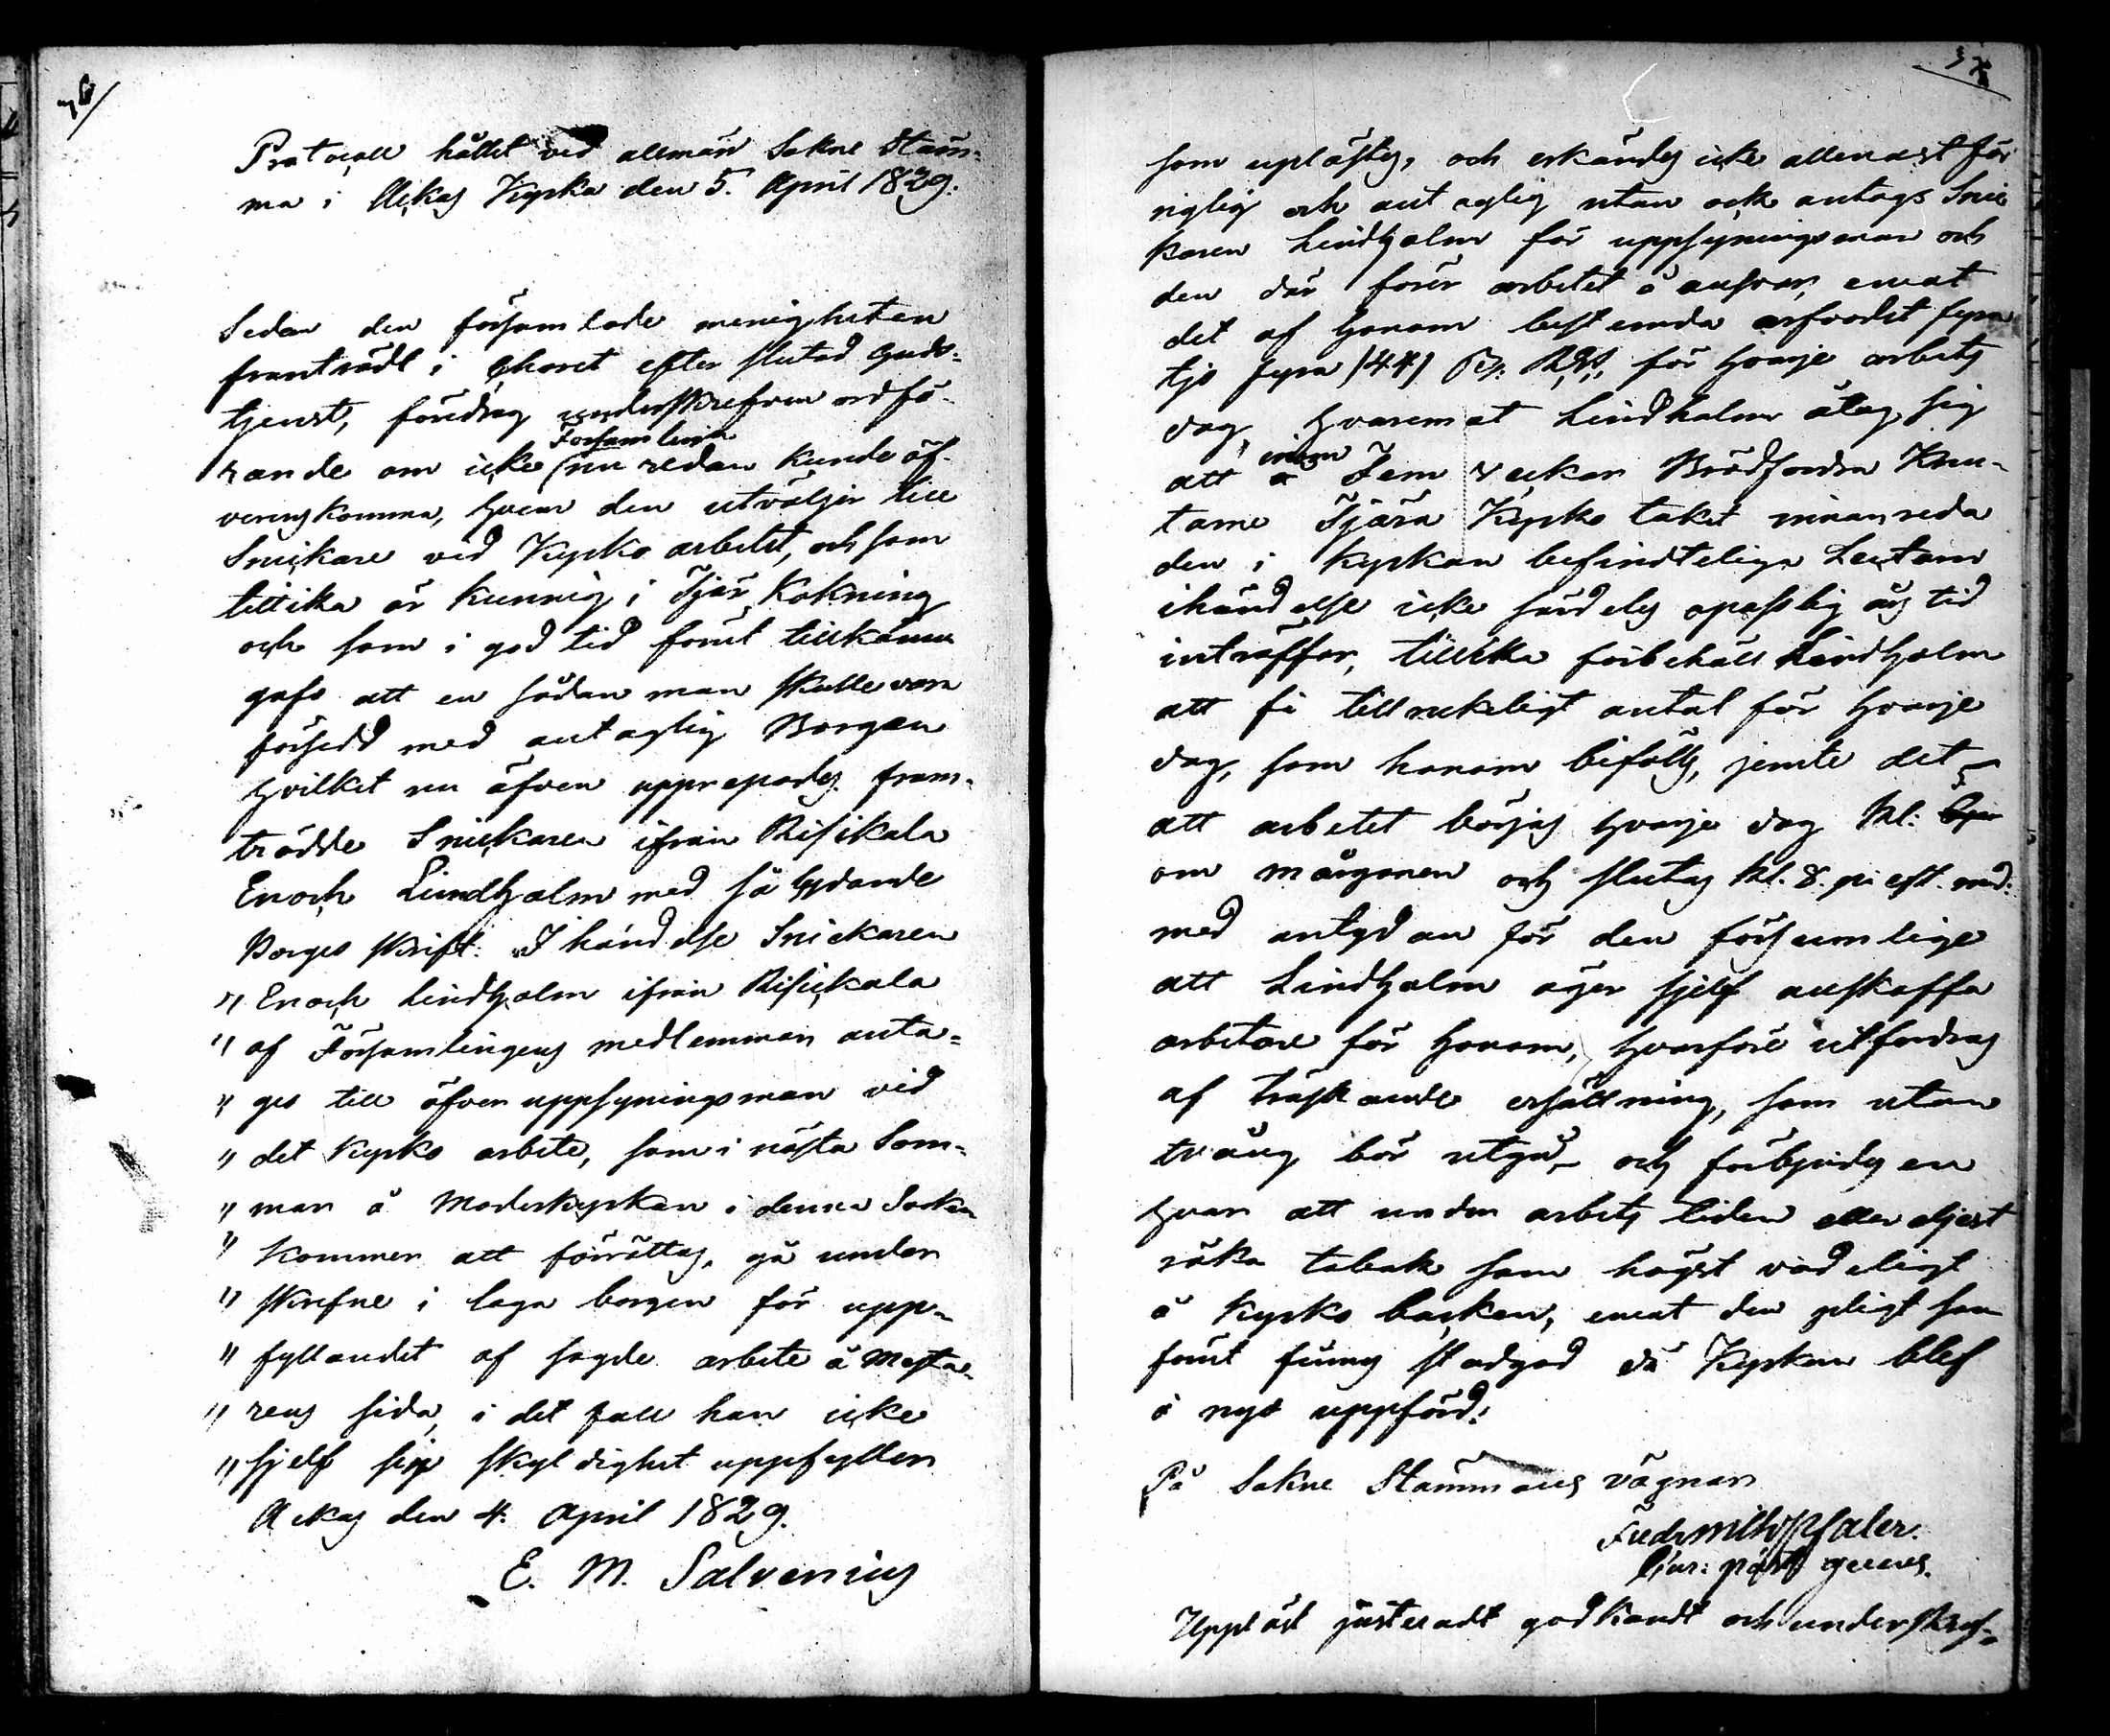 Protocoll hållit vid allmän Sokne Stäm-
ma i Ackas Kyrka den 5. April 1829.
Sedan den församlade menigheten
framträdt i Choret efter slutad Guds-
tjenst, föredrog underskrefven ordfö-
Församlingen
rande om icke nu redan kunde öf-
verenskomma, hvem den utväljer till
Snickare vid Kyrko arbetet, och som
tillika är kunnig i Tjär Kokning
och som i god tid förut tillkänna
gafs att en sådan man skulle vara
försedd med antaglig Borgen
hvilket nu äfven upprepades. fram-
trädde Snickaren ifrån Risikala
Enoch Lindholm med så lydande
Borges skrift. I händelse Snickaren
" Enoch Lindholm ifrån Risikala
" af Församlingens medlemmar anta-
" ges till öfver uppsyningsman vid
" det Kyrko arbete, som i nästa Som-
" mar å Moderkyrkan i denna Socken
" Kommer att förrättas, gå under
" skrefne i laga borgen för upp-
" fyllandet af sagde arbete å Mästa-
" rens sida, i det fall han icke
" sjelf sin skyldighet uppfyller
Ackas den 4. April 1829.
E. M. Salvenius
37
som uplästes, och erkändes icke allenast för
riglig och antaglig utan ock antogs Snic
karen Lindholm för uppsyningsman och
den där förer arbetet å ansvar, emot
det af honom bestämda arfvodet fyra
tjo fyra /44/ för hvarje arbets
dag, hvaremot Lindholm åtog sig
inom
att å Fem veckor Brädfordra
tame Tjära Kyrko taket innan reda
den i Kyrkan befindteliga
ihändelse icke särdeles opasslig års tid
inträffar, tillika förbehåll Lindholm
att få tillräckeligt antal för hvarje
dag, som honom bifölls, jemte det
att arbetet börjas hvarje dag kl: 5
om mårgonen och slutas kl. 8. på eft. mid:
med antydan för den försumlige
att Lindholm äger sjelf anskaffa
arbetare för honom, hvarföre utfordras
af träskande ersättning, som utan
tvång bör utgå, och förbjudes en
hvar att under arbets tiden eller eljest
röka tobak som högst vådeligt
å Kyrko backen, emot den pligt som
förut finnes stadgad då Kyrkan blef
å nyo uppförd.
På Sokne Stämmans vägnar
Fredr Wilh Pfaler.
Uppläst justeradt godkändt och underskref-